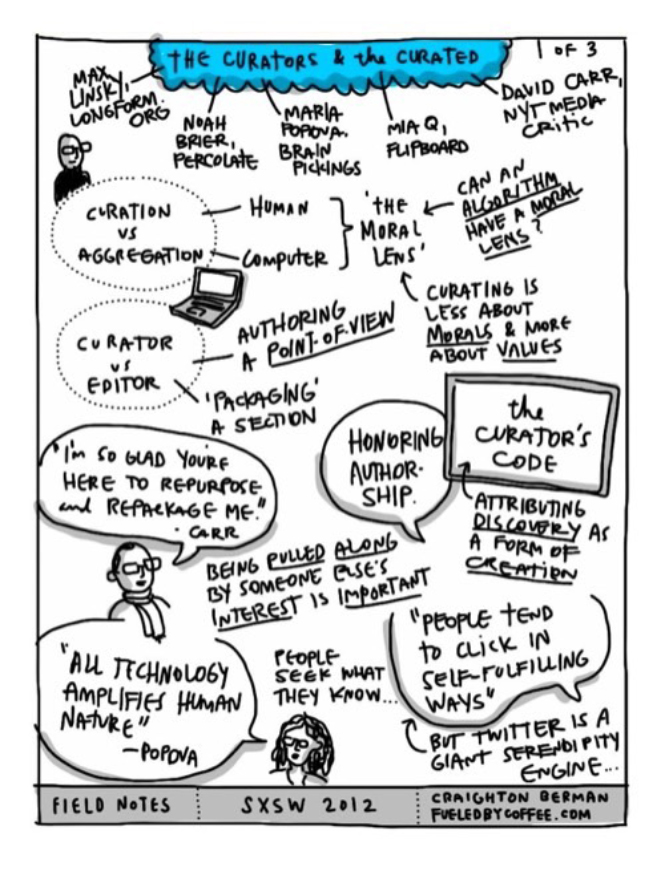 THE CURATORS & the CURATED
1 OF 3
MAX
LINSKY,
LONGFORM.
ORG
NOAH
BRIER,
PERCOLATE
MARIA
POPOVA,
BRAIN
PICKINGS
MIA Q,
FLIPBOARD
DAVID CARR,
NYT MEDIA
CRITIC
CURATION
VS
AGGREGATION
HUMAN
COMPUTER
'THE
MORAL
LENS'
CAN AN
ALGORITHM
HAVE A MORAL
LENS?
CURATING IS
LESS ABOUT
MORALS & MORE
ABOUT VALUES
CURATOR
VS
EDITOR
AUTHORING
A POINT-OF-VIEW
'PACKAGING'
A SECTION
HONORING
AUTHOR-
SHIP.
the
CURATOR'S
CODE
ATTRIBUTING
DISCOVERY AS
A FORM OF
CREATION
"I'M SO GLAD YOU'RE
HERE TO REPURPOSE
and REPACKAGE ME."
- CARR
BEING PULLED ALONG
BY SOMEONE ELSE'S
INTEREST IS IMPORTANT
"ALL TECHNOLOGY
AMPLIFIES HUMAN
NATURE"
—POPOVA
PEOPLE
SEEK WHAT
THEY KNOW...
"PEOPLE TEND
TO CLICK IN
SELF-FULFILLING
WAYS"
BUT TWITTER IS A
GIANT SERENDIPITY
ENGINE...
FIELD NOTES
SXSW 2012
CRAIGHTON BERMAN
FUELEDBYCOFFEE.COM